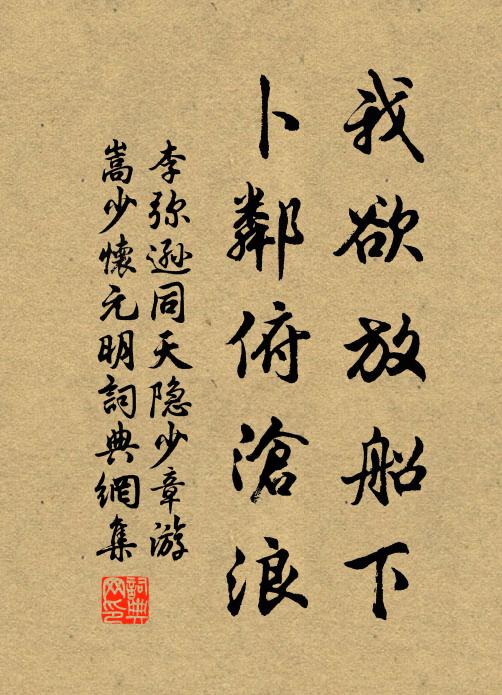 我欲放船下
卜鄰俯滄浪
李弥遜同天隐少章游
嵩少懷元明詞典網集
詞典
网印